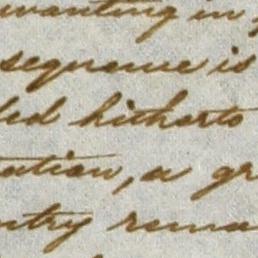 wanting in
sequence is
led hitherto
tation, a gr
ntry rema